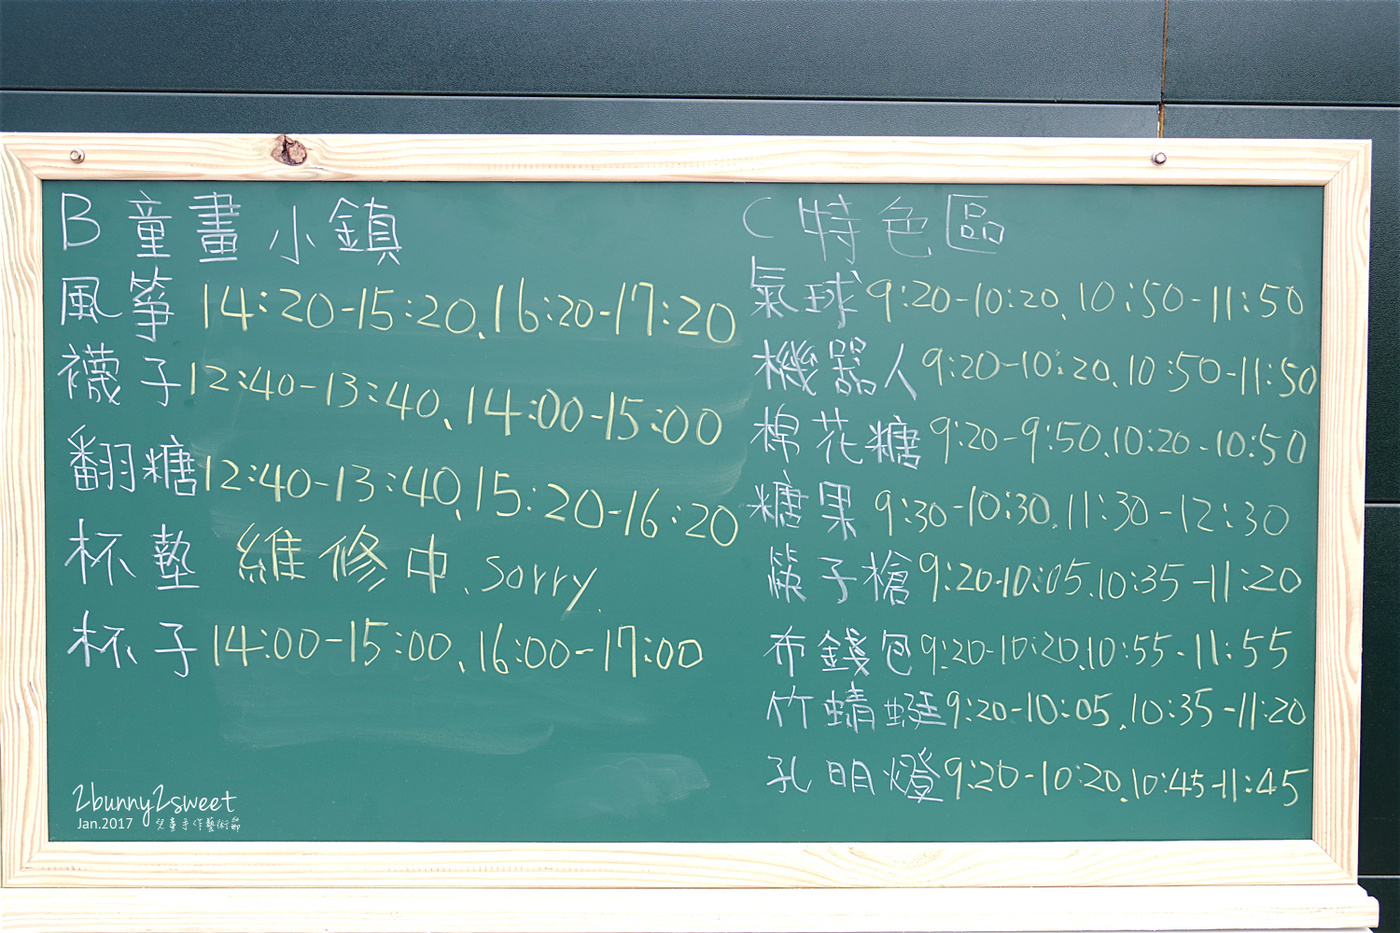 B 童畫小鎮
風箏 14:20-15:20、16:20-17:20
襪子 12:40-13:40、14:00-15:00
翻糖 12:40-13:40、15:20-16:20
杯墊 維修中、sorry
杯子 14:00-15:00、16:00-17:00
C 特色區
氣球 9:20-10:20、10:50-11:50
機器人 9:20-10:20、10:50-11:50
棉花糖 9:20-9:50、10:20-10:50
糖果 9:30-10:30、11:30-12:30
筷子槍 9:20-10:05、10:35-11:20
布錢包 9:20-10:20、10:55-11:55
竹蜻蜓 9:20-10:05、10:35-11:20
孔明燈 9:20-10:20、10:45-11:45
2bunny2sweet
Jan.2017 兒童手作藝術節